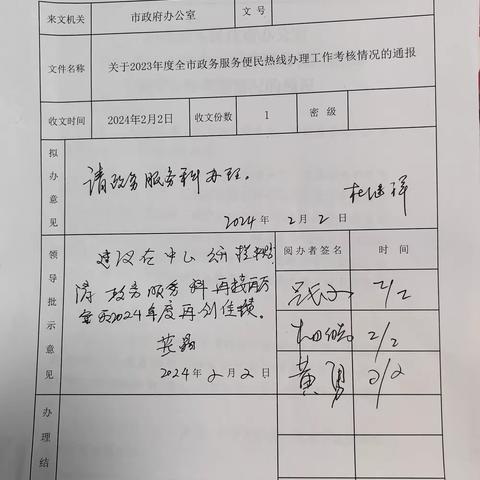 来文机关 市政府办公室 文号
文件名称 关于2023年度全市政务服务便民热线办理工作考核情况的通报
收文时间 2024年2月2日 收文份数 1 密级
拟办意见
请政务服务科办理。
2024年2月2日
领导批示意见
建议在中心
政务服务科再接再厉
2024年度再创佳绩。
2024年2月2日
阅办者签名 时间
2/2
2/2
黄勇 2/2
办理结